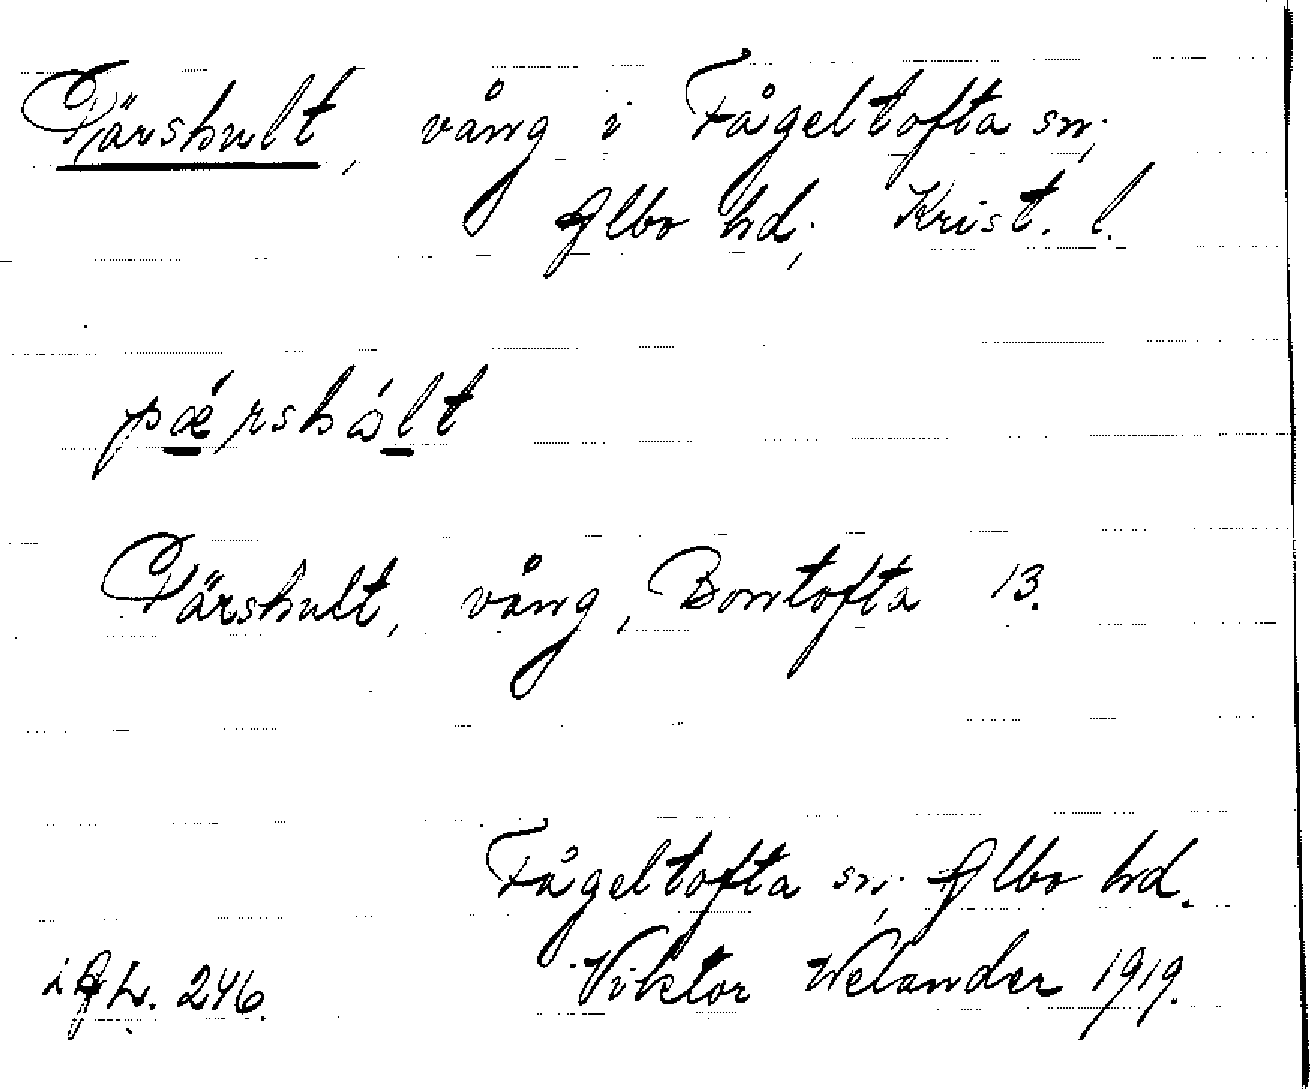 Pärshult, vång i Fågeltofta sn;
Albo hd; Krist. l.
pǽrshòlt
Pärshult, vång, Bontofta 13.
Fågeltofta sn; Albo hd.
Viktor Welander 1919.
246.